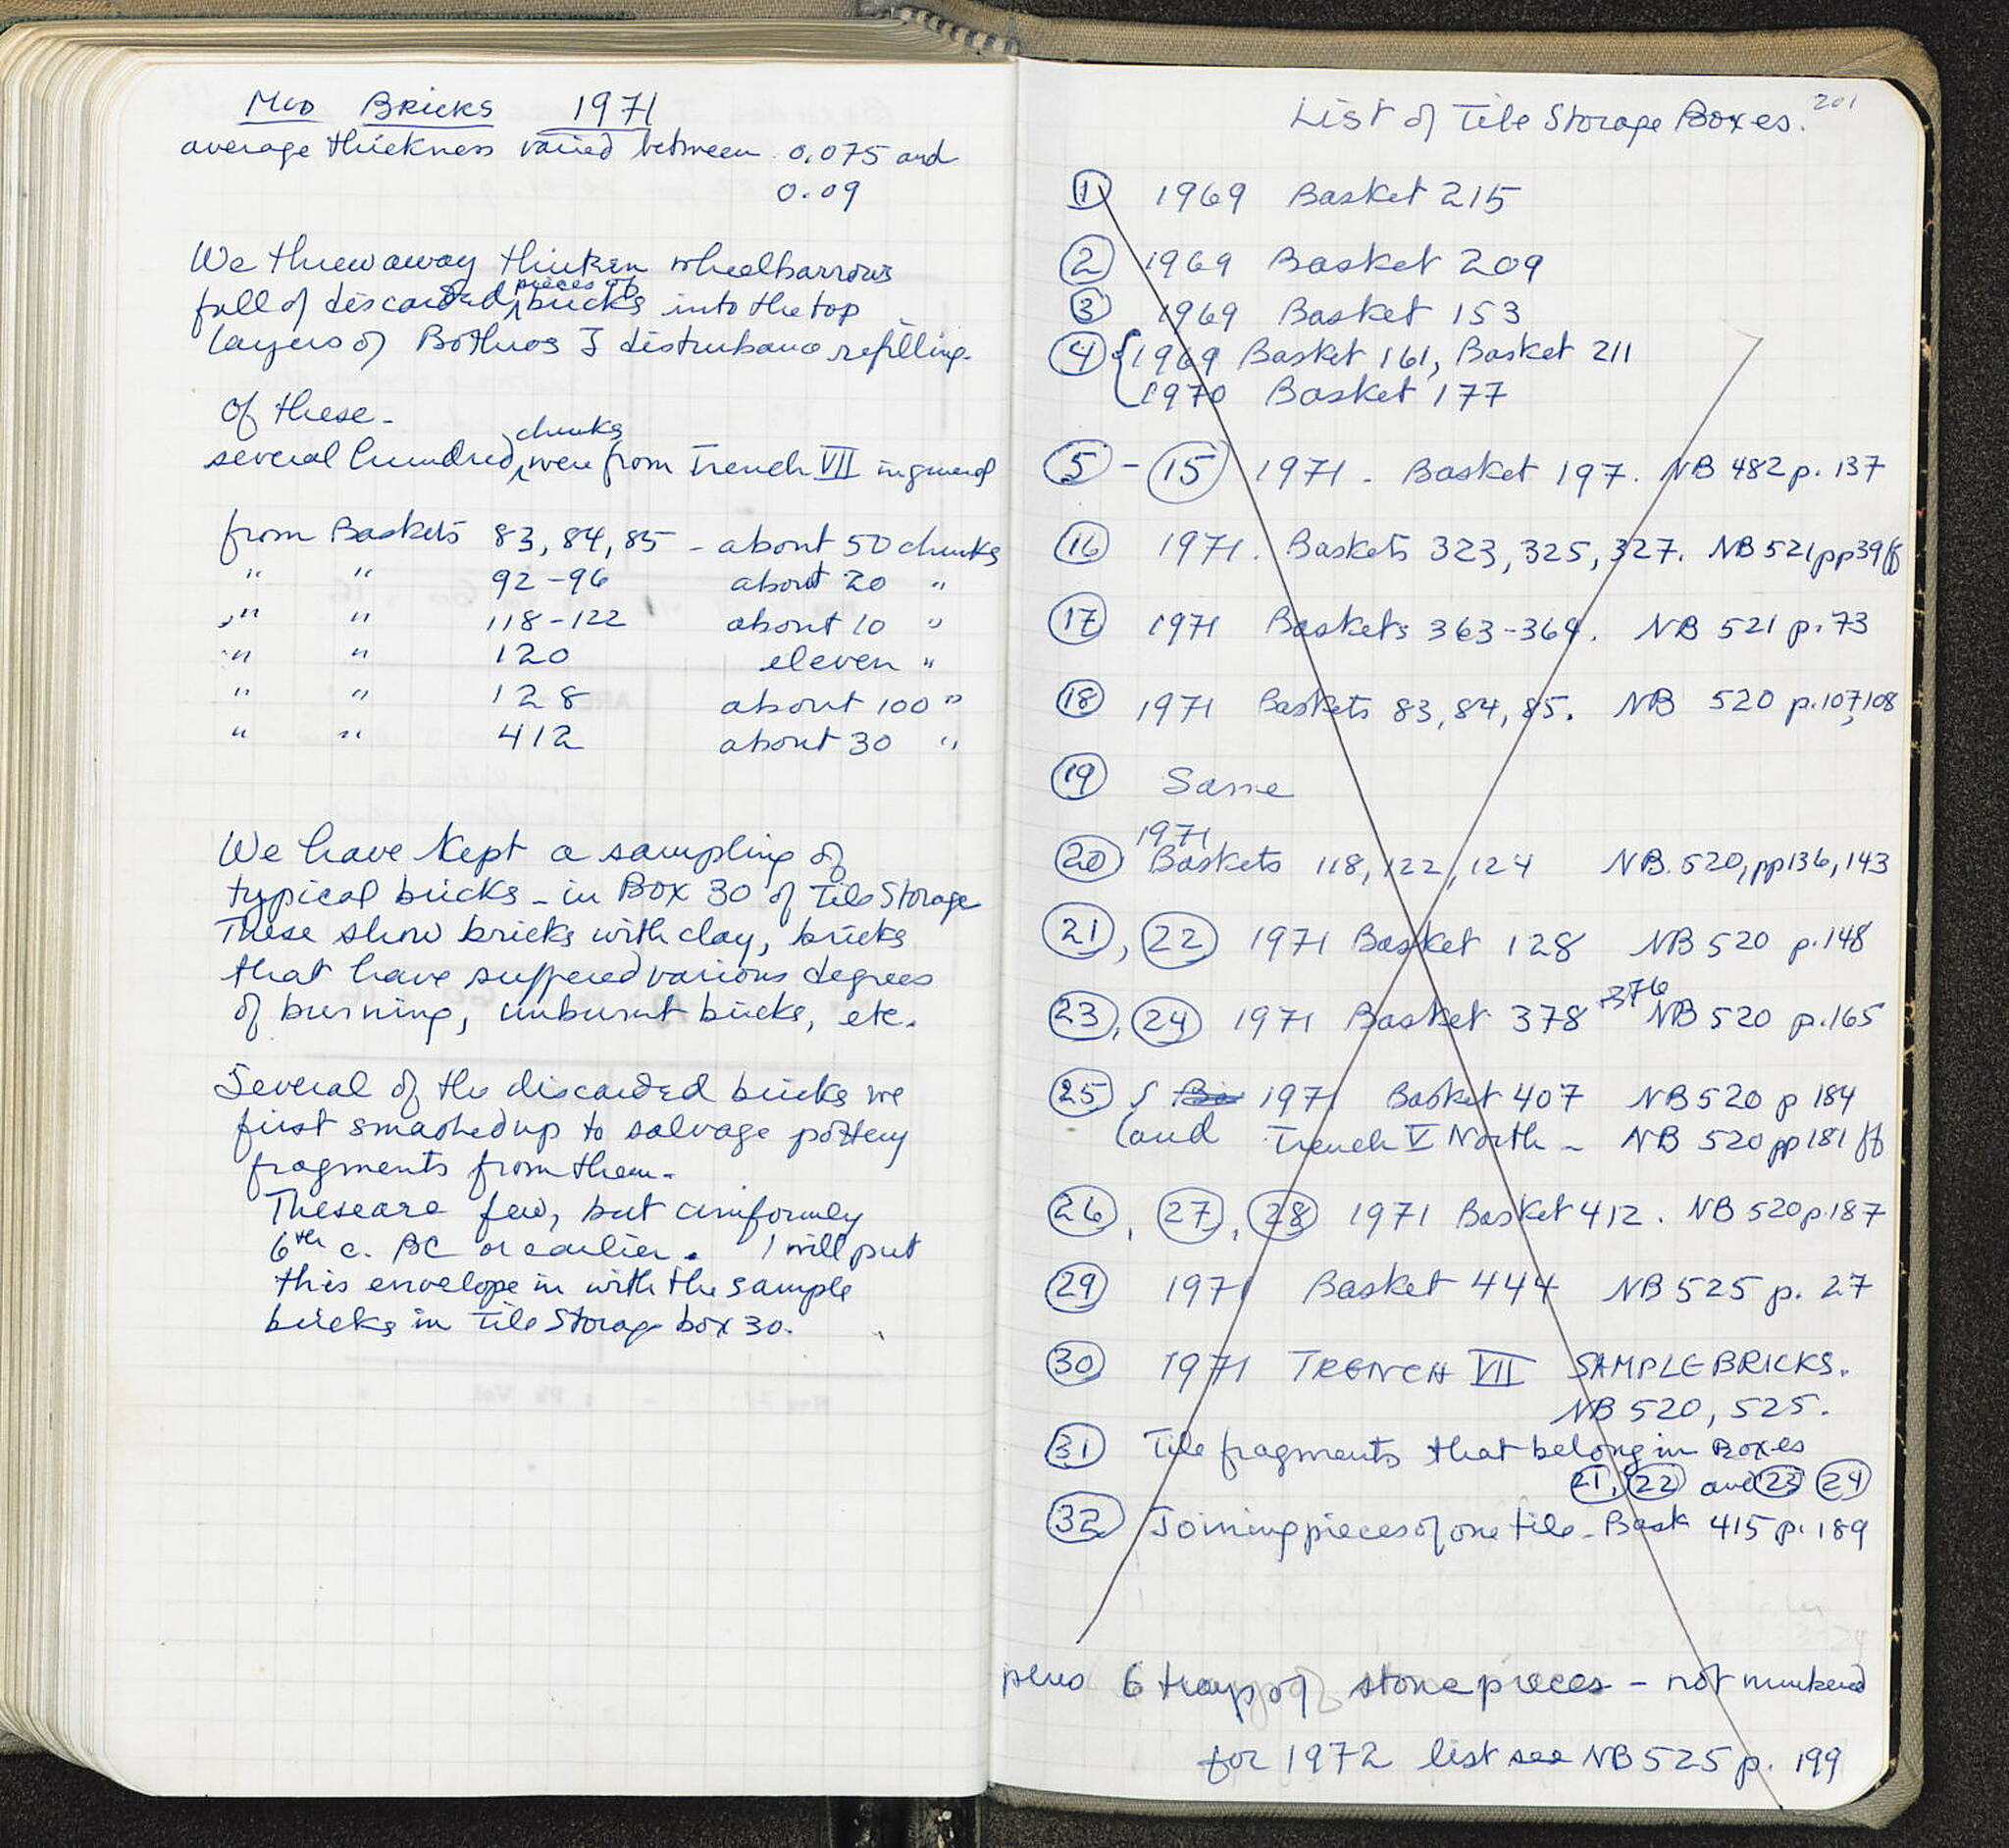 MUD BRICKS 1971
average thickness varied between 0.075 and
0.09
We threw away thirteen wheelbarrows
full of discarded pieces of bricks into the top
layers of Bothros I disturbance refilling.
Of these -
several hundred chunks were from Trench VII in general
from Baskets 83, 84, 85 - about 50 chunks
" " 92-96 about 20 "
" " 118-122 about 10 "
" " 120 eleven "
" " 128 about 100 "
" " 412 about 30 "
We have kept a sampling of
typical bricks - in Box 30 of Tile Storage
These show bricks with clay, bricks
that have suffered various degrees
of burning, unburnt bricks, etc.
Several of the discarded bricks we
first smashed up to salvage pottery
fragments from them.
These are few, but uniformly
6th c. BC or earlier. I will put
this envelope in with the sample
bricks in Tile Storage box 30.
201
List of Tile Storage Boxes.
1 1969 Basket 215
2 1969 Basket 209
3 1969 Basket 153
4 { 1969 Basket 161, Basket 211
1970 Basket 177
5 - 15 1971 - Basket 197. NB 482 p. 137
16 1971. Baskets 323, 325, 327. NB 521 pp 39 ff
17 1971 Baskets 363-364. NB 521 p. 73
18 1971 Baskets 83, 84, 85. NB 520 p. 107, 108
19 Same
1971
20 Baskets 118, 122, 124 NB. 520, pp 136, 143
21, 22 1971 Basket 128 NB 520 p. 148
23, 24 1971 Basket 378 376 NB 520 p. 165
25 { 1971 Basket 407 NB 520 p 184
and Trench V North - NB 520 pp 181 ff
26, 27, 28 1971 Basket 412. NB 520 p. 187
29 1971 Basket 444 NB 525 p. 27
30 1971 TRENCH VII SAMPLE BRICKS.
NB 520, 525.
31 Tile fragments that belong in Boxes
21, 22 and 23 24
32 Joining pieces of one tile - Bask 415 p. 189
plus 6 trays of stone pieces - not numbered
for 1972 list see NB 525 p. 199